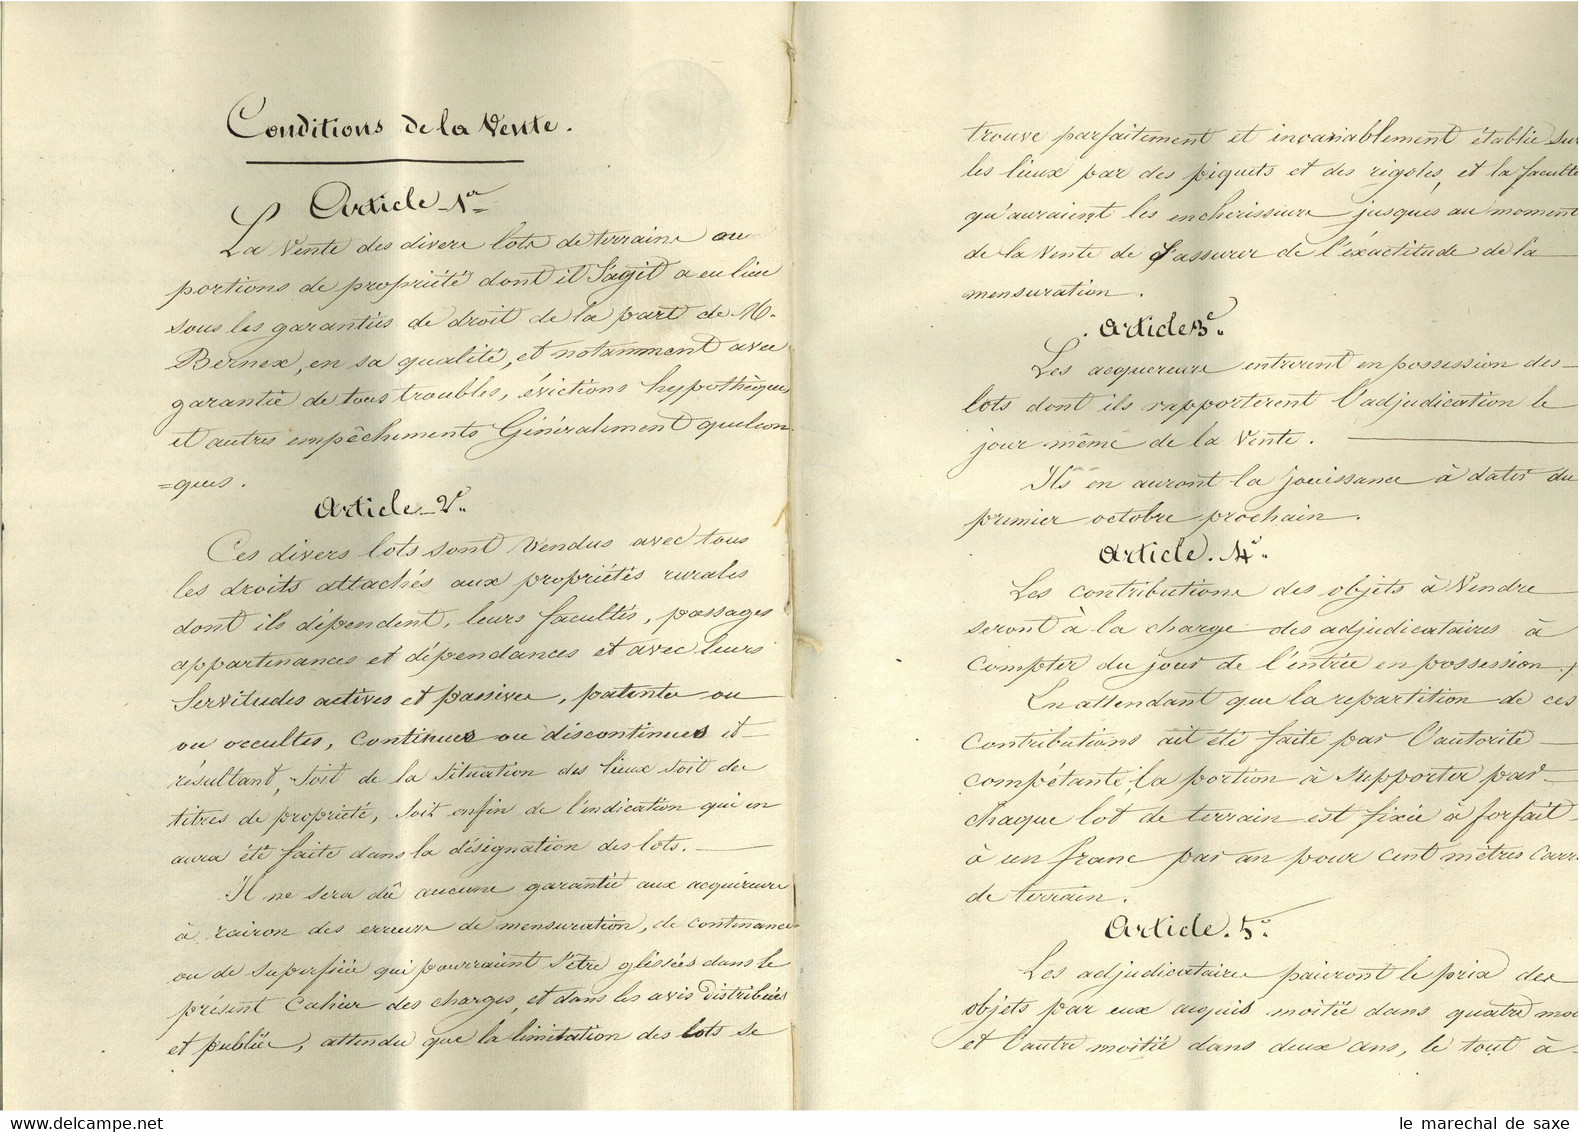 Conditions de la Vente.
Article 1er
La Vente des divers lots de terrains ou
portions de propriété dont il S'agit a eu lieu
sous les garanties de droit de la part de M.
Bernex, en sa qualité, et notamment avec
garantie de tous troubles, évictions hypothèques
et autres empêchements Généralement quelcon
=ques.
Article 2e.
Ces divers lots sont Vendus avec tous
les droits attachés aux propriétés rurales
dont ils dépendent, leurs facultés, passages
appartenances et dépendances et avec leurs
Servitudes actives et passives, patentes ou
ou occultes, continues ou discontinues et
résultant, Soit de la Situation des lieux soit des
titres de propriété, Soit enfin de l'indication qui en
aura été faite dans la désignation des lots.
Il ne sera dû aucune garantie aux acquéreurs
à raison des erreurs de mensuration, de contenance
ou de superficie qui pourraient S'être glissées dans le
présent Cahier des charges, et dans les avis distribués
et publiés, attendu que la limitation des lots se
trouve parfaitement et invariablement établie sur
les lieux par des piquets et des rigoles, et la faculté
qu'auraient les enchérisseurs jusques au moment
de la Vente de S'assurer de l'éxactitude de la
mensuration.
Article 3e.
Les acquereurs entreront en possession des
lots dont ils rapporteront l'adjudication le
jour même de la Vente.
Ils en auront la jouissance à dater du
premier octobre prochain.
Article. 4e.
Les contributions des objets à Vendre
seront à la charge des adjudicataires à
compter du jour de l'entrée en possession.
En attendant que la repartition de ces
contributions ait été faite par l'autorité
compétante, la portion à Supporter par
chaque lot de terrain est fixée à forfait
à un franc par an pour cent mètres Carr
de terrain.
Article. 5e.
Les adjudicataires paieront le prix des
objets par eux acquis moitié dans quatre moi
et l'autre moitié dans deux ans, le tout à
le marechal de saxe